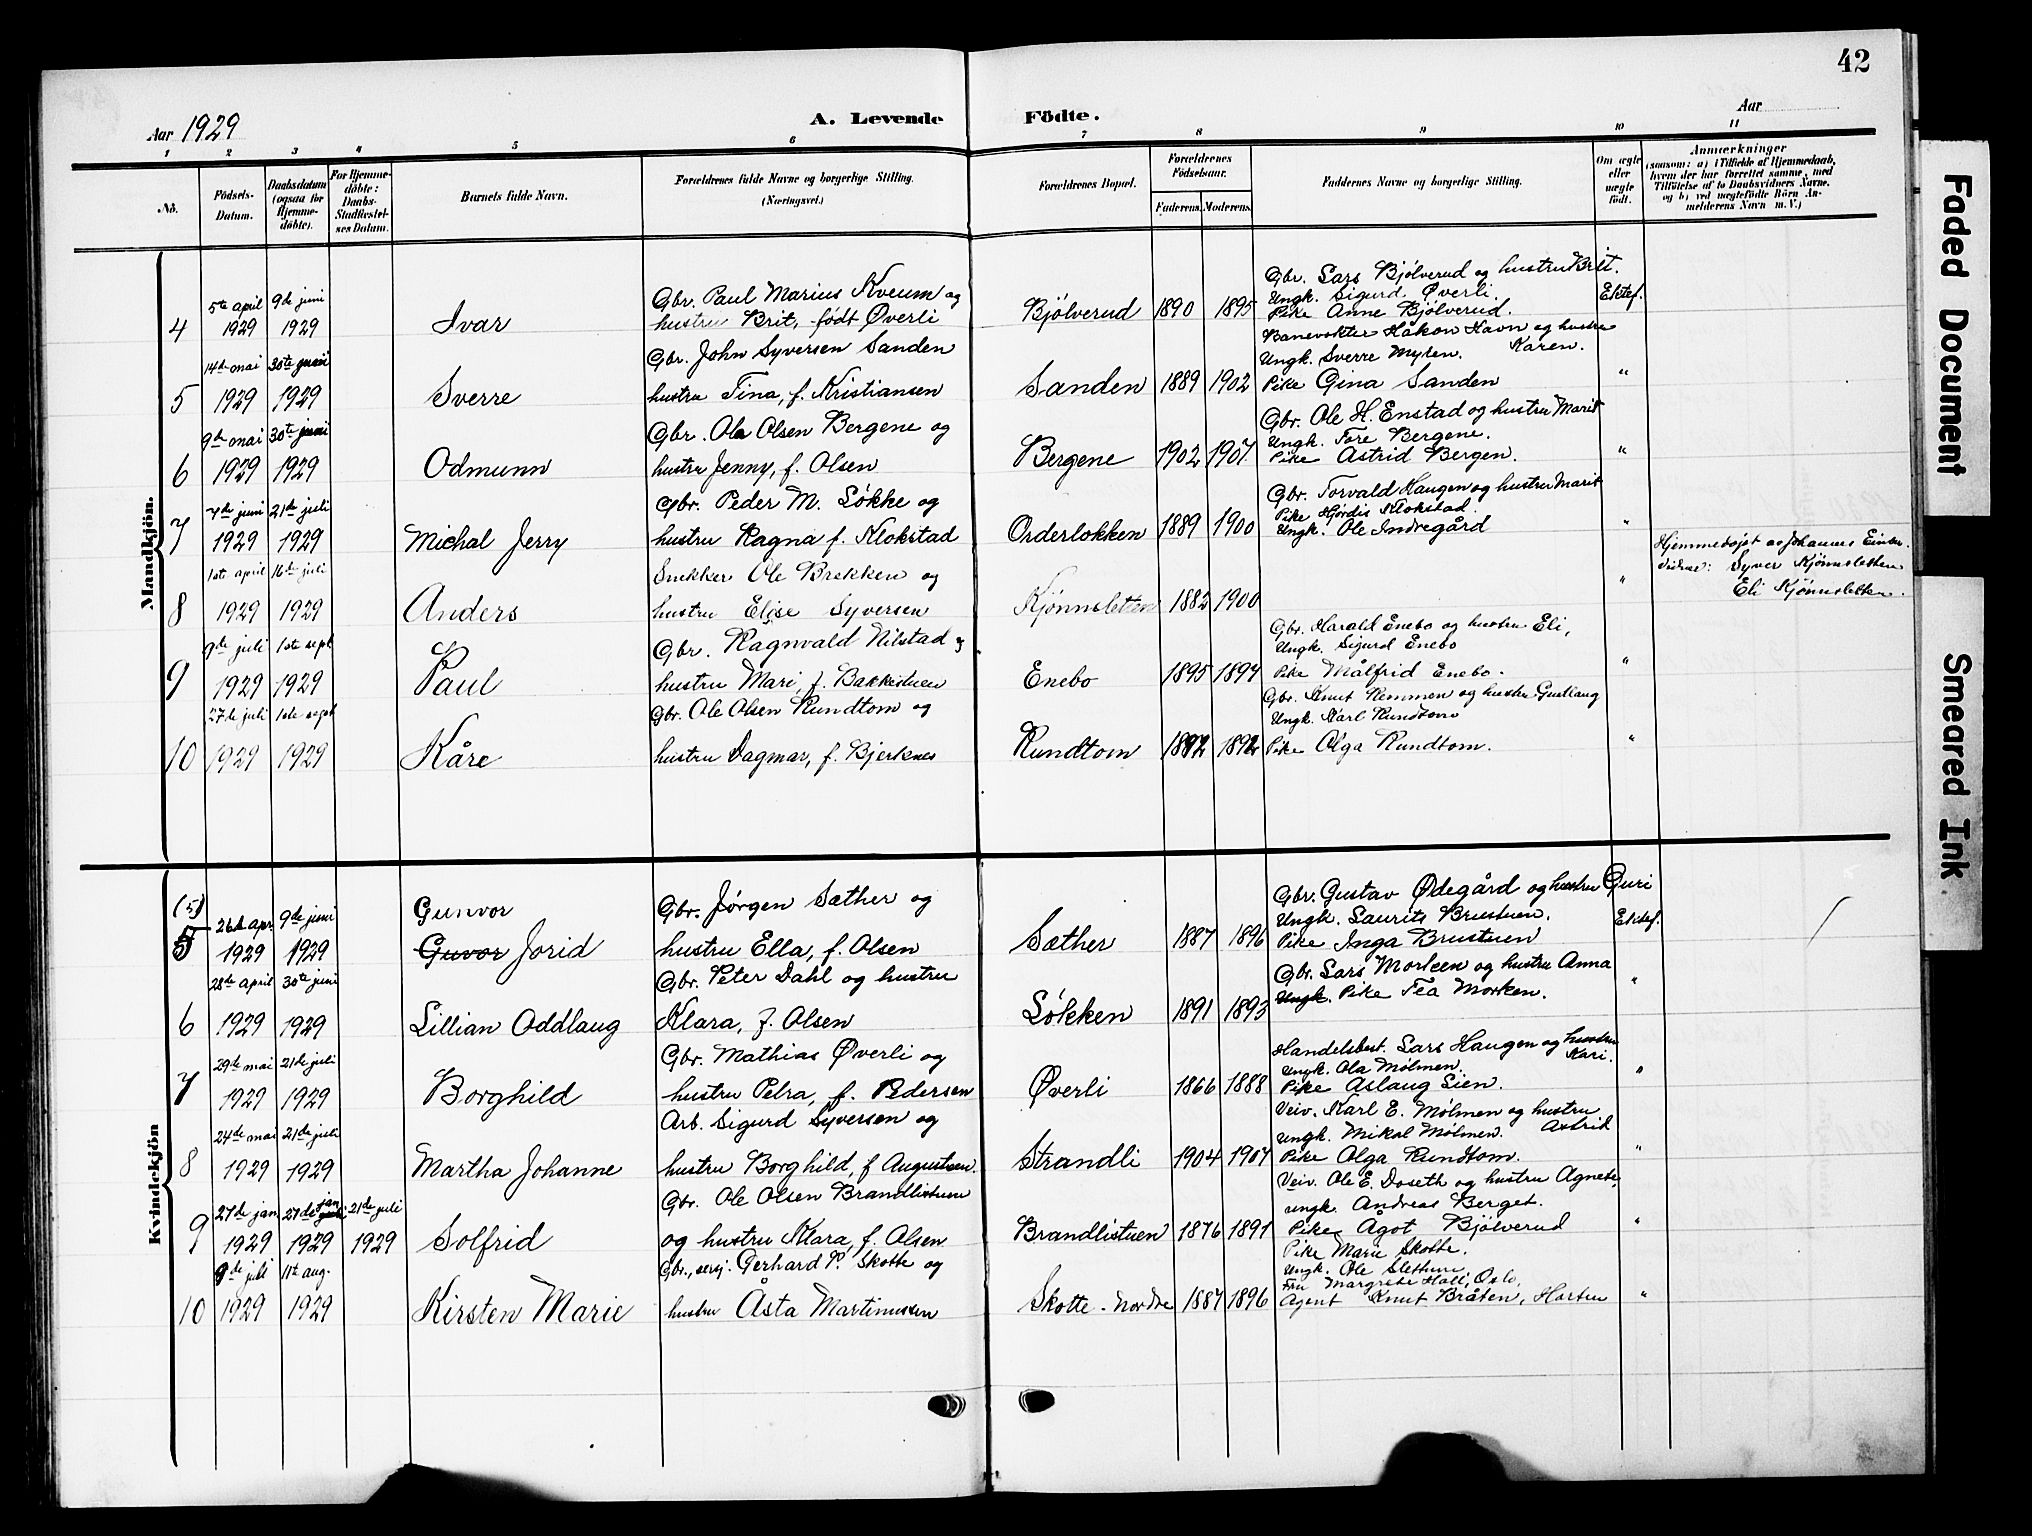 42
Aar 1929
A. Levende Födte.
Aar
1 2 3 4 5 6 7 8 9 10 11
No.
Födsels-Datum.
Daabsdatum (ogsaa for Hjemme-döbte).
For Hjemme-döbte: Daabs-Stadfæstel-ses Datum.
Barnets fulde Navn.
Forældrenes fulde Navne og borgerlige Stilling. (Næringsvei.)
Forældrenes Bopæl.
Forældrenes Födselsaar.
Faderens. Moderens.
Faddernes Navne og borgerlige Stilling.
Om ægte eller uægte født.
Anmærkninger
(saasom: a) i Tilfælde af Hjemmedaab, hvem der har forrettet samme, med Tilföielse af to Daabsvidners Navne, og b) ved uægtefödte Börn An-melderens Navn m. V.)
Mandkjön.
4 5te april 1929 9de juni 1929 Ivar
Gbr. Paul Marius Kveum og
hustru Brit, født Øverli
Bjölverud 1890 1895
Gbr. Lars Bjölverud og hustru Brit.
Ungk. Sigurd Øverli.
Pike Anne Bjölverud.
Ektef.
5 14de mai 1929 30te juni 1929 Sverre
Gbr. John Syversen Sanden
hustru Tina, f. Kristiansen
Sanden 1889 1902
Banevokter Håkon Havn og hustru Karen.
Ungk. Sverre Myten.
Pike Gina Sanden
"
6 9de mai 1929 30te juni 1929 Odmunn
Gbr. Ola Olsen Bergene og
hustru Jenny, f. Olsen
Bergene 1902 1907
Gbr. Ole H. Enstad og hustru Marit
Ungk. Tore Bergene.
Pike Astrid Bergen.
"
7 7de juni 1929 21de juli 1929 Michal Jerry
Gbr. Peder M. Løkke og
hustru Ragna f. Klokstad
Orderlokken 1889 1900
Gbr. Torvald Haugen og hustru Marit
Pike Hjördis Klokstad.
Ungk. Ole Indregård
"
8 1ste april 1929 16de juli 1929 Anders
Snekker Ole Brekken og
hustru Elise Syversen
Kjönnsletten 1882 1900
"
Hjemmedøpt av Johannes
Vidner: Syver Kjönnsletten
Eli Kjönnsletten.
9 9de juli 1929 1ste sept 1929 Paul
Gbr. Ragnvald Nilstad og
hustru Mari, f. Bakkestuen
Enebo 1895 1894
Gbr. Harald Enebo og hustru Eli,
Ungk. Sigurd Enebo
Pike Målfrid Enebo.
"
10 27de juli 1929 1ste sept 1929 Kåre
Gbr. Ole Olsen Rundtom og
hustru Dagmar, f. Bjerknes
Rundtom 1892 1892
Gbr. Knut Remmen og hustru Gustlaug
Ungk. Karl Rundtom
Pike Olga Rundtom.
"
Kvindekjön
(5)
5 26de apr 1929 9de juni 1929
Gunvor
Guvor Jorid
Gbr. Jørgen Sæther og
hustru Ella, f. Olsen
Sæther 1887 1896
Gbr. Gustav Ødegård og hustru Guri
Ungk. Laurits Brustuen.
Pike Inga Brustuen
Ektef.
6 28de april 1929 30te juni 1929 Lillian Oddlaug
Gbr. Peter Dahl og hustru
Klara, f. Olsen
Løkken 1891 1893
Gbr. Lars Morken og hustru Anna
Ungk. Pike Tea Morken.
"
7 29de mai 1929 21de juli 1929 Borghild
Gbr. Mathias Øverli og
hustru Petra, f. Pedersen
Øverli 1866 1888
Handelsbest. Lars Haugen og hustru Kari.
Ungk. Ola Mølmen.
Pike Aslaug Lien.
"
8 24de mai 1929 21de juli 1929 Martha Johanne
Arb. Sigurd Syversen og
hustru Borghild, f Augustsen.
Strandli 1904 1907
Veiv. Karl E. Mølmen og hustru Astrid
Ungk. Mikal Mølmen.
Pike Olga Rundtom.
"
9 27de jan 1929 27de juli jan 1929 21de juli 1929 Solfrid
Gbr. Ole Olsen Brandlistuen
og hustru Klara, f. Olsen
Brandlistuen 1876 1891
Veiv. Ole E. Doseth og hustru Agnete,
ungk. Andreas Berget.
Pike Ågot Bjölverud
"
10 9de juli 1929 11te aug. 1929 Kirsten Marie
Gbr., sersj. Gerhard P. Skotte og
hustru Åsta Martinussen
Skotte-Nordre 1887 1896
Pike Marie Skotte.
Ungk. Ole Slettum.
Fru Margrete Hall, Oslo,
Agent Knut Bråten,
"
Faded Document
Smeared Ink